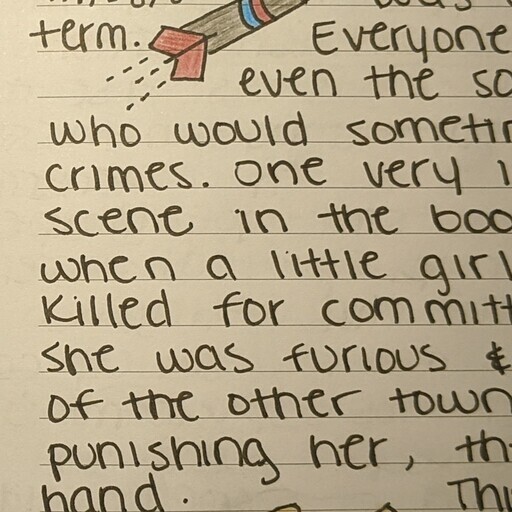 term. Everyone
even the so
who would someti
crimes. One very i
scene in the boo
when a little girl
killed for committ
she was furious &
of the other town
punishing her, th
hand. Thi